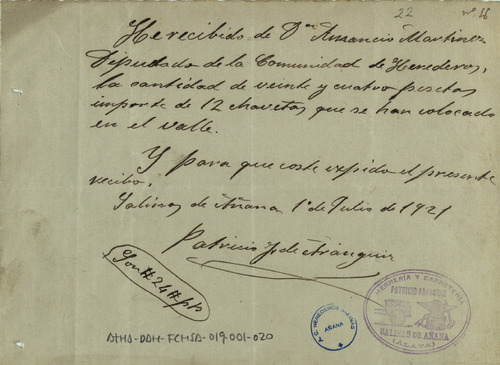 22
nº 56
He recibido de Dn Amancio Martinez
Diputado de la Comunidad de Herederos,
la cantidad de veinte y cuatro pesetas
importe de 12 chavetas que se han colocado
en el valle.
Y para que coste expido el presente
recibo.
Salinas de Añana 1º de Julio de 1921
Patricio
Son # 24 # pts
ATHA-DAH-FCMSA-019-001-020
AÑANA
HERRERIA Y CARRETERIA
PATRICIO
SALINAS DE AÑANA
(ALAVA)